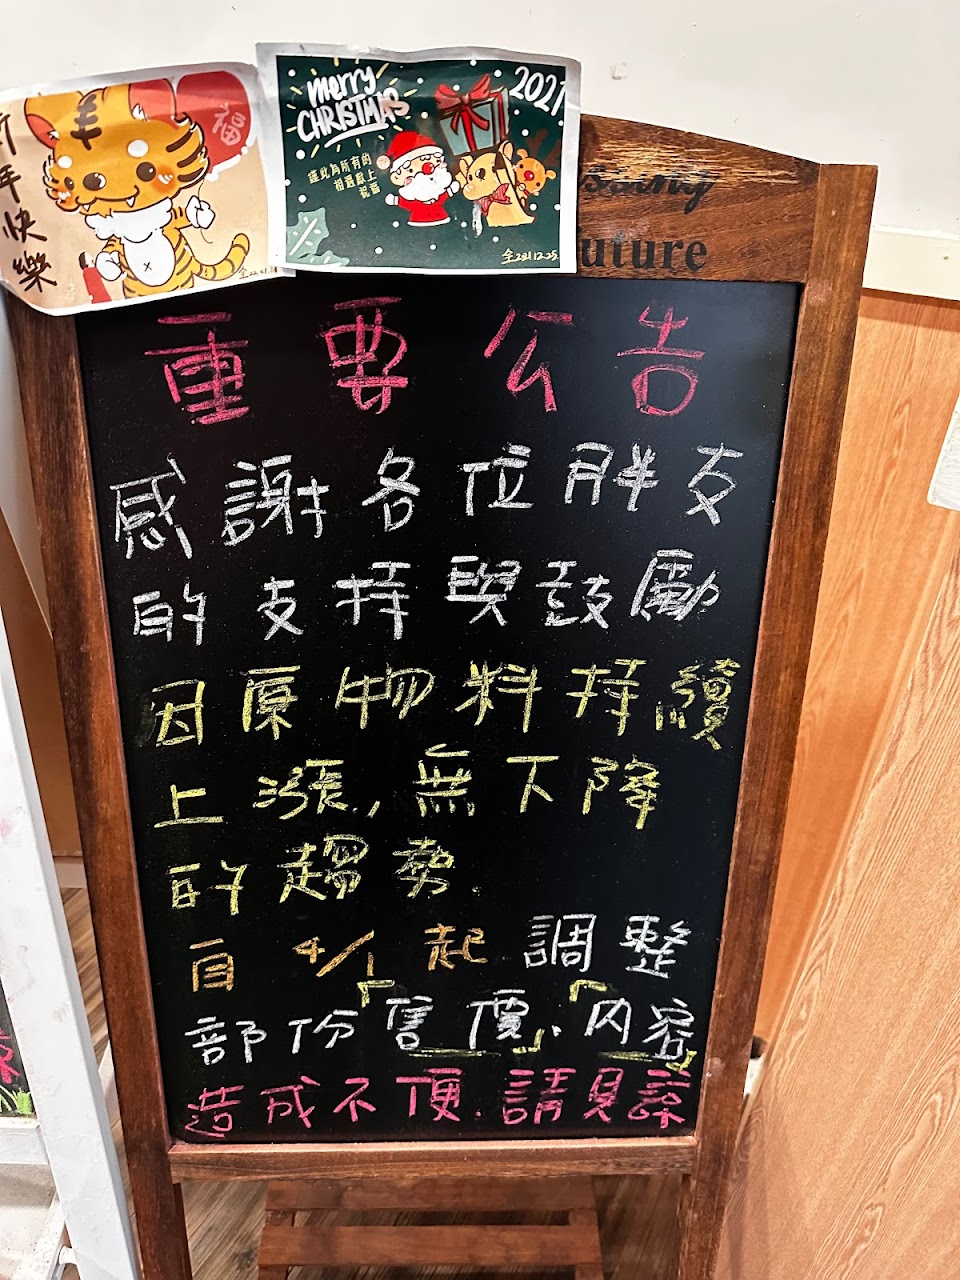 新年快樂
福
merry
CHRISTMAS
2021
謹此為所有的
相遇獻上
祝福
全2021.12.25.
uture
重要公告
感謝各位胖友
的支持與鼓勵
因原物料持續
上漲,無下降
的趨勢.
自4/1起調整
部份「售價」.「內容」
造成不便.請見諒